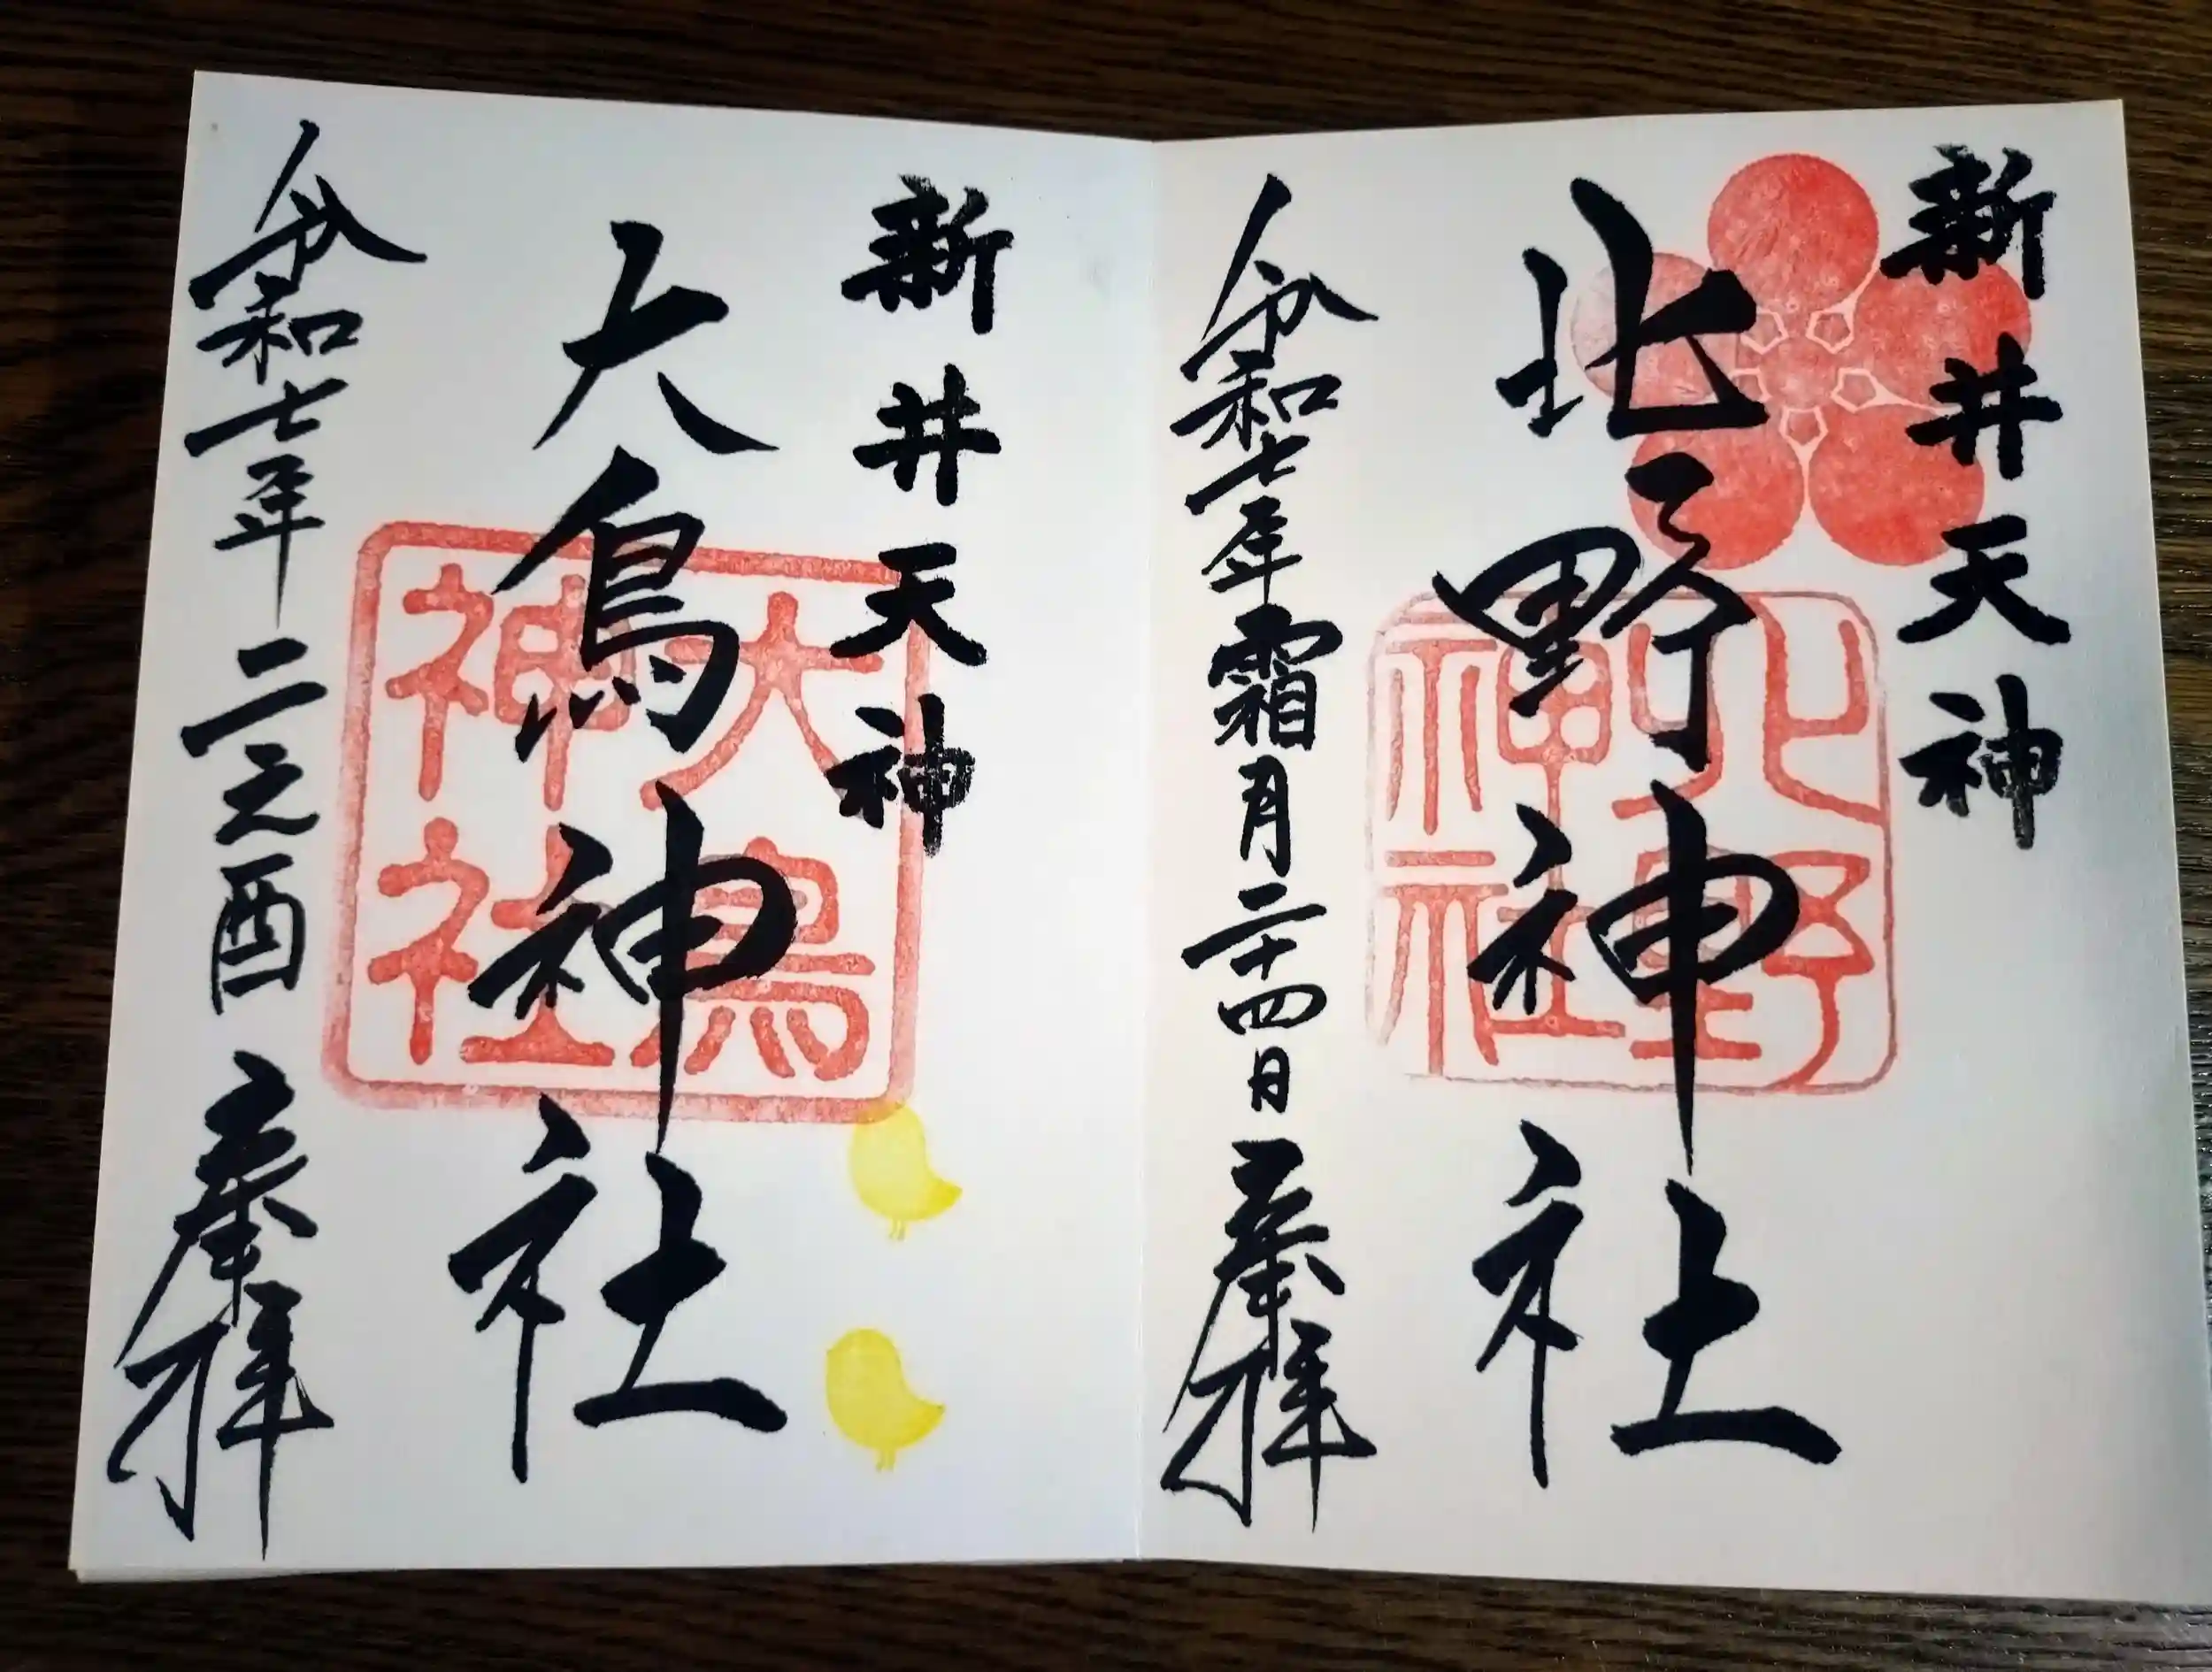 新井天神
北野神社
北野神社
令和七年霜月二十四日奉拝
新井天神
大鳥神社
大鳥神社
令和七年二之酉奉拝